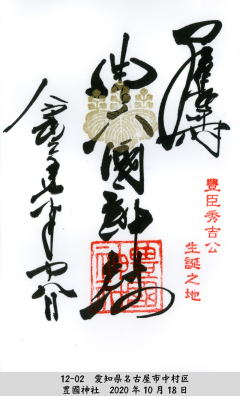 奉拝
豊臣秀吉公
生誕之地
豊國神社
令和二年十月十八日
12-02 愛知県名古屋市中村区
豊國神社 2020年10月18日